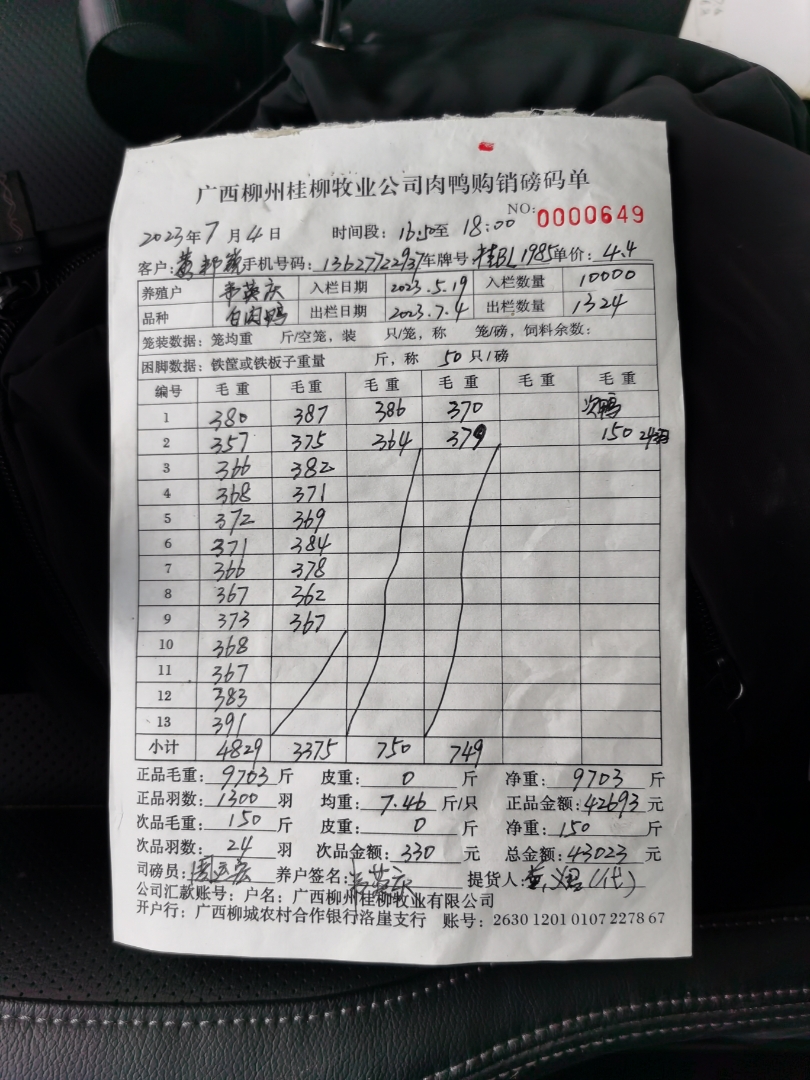 广西柳州桂柳牧业公司肉鸭购销磅码单
NO: 0000649
2023年7月4日 时间段: 16:50至 18:00
客户: 黄 手机号码: 13627722937 车牌号: 桂BL1985 单价: 4.4
养殖户 韦英庆 入栏日期 2023.5.19 入栏数量 10000
品种 白肉鸭 出栏日期 2023.7.4 出栏数量 1324
笼装数据: 笼均重 斤/空笼, 装 只/笼, 称 笼/磅, 饲料余数:
困脚数据: 铁筐或铁板子重量 斤, 称 50 只/磅
编号 毛重 毛重 毛重 毛重 毛重 毛重
1 380 387 386 370 次鸭
2 357 375 364 379 150 24羽
3 366 382
4 368 371
5 372 369
6 371 384
7 366 378
8 367 362
9 373 367
10 368
11 367
12 383
13 391
小计 4829 3375 750 749
正品毛重: 9703 斤 皮重: 0 斤 净重: 9703 斤
正品羽数: 1300 羽 均重: 7.46 斤/只 正品金额: 42693 元
次品毛重: 150 斤 皮重: 0 斤 净重: 150 斤
次品羽数: 24 羽 次品金额: 330 元 总金额: 43023 元
司磅员: 养户签名: 韦英庆 提货人: (代)
公司汇款账号: 户名: 广西柳州桂柳牧业有限公司
开户行: 广西柳城农村合作银行洛崖支行 账号: 2630 1201 0107 2278 67